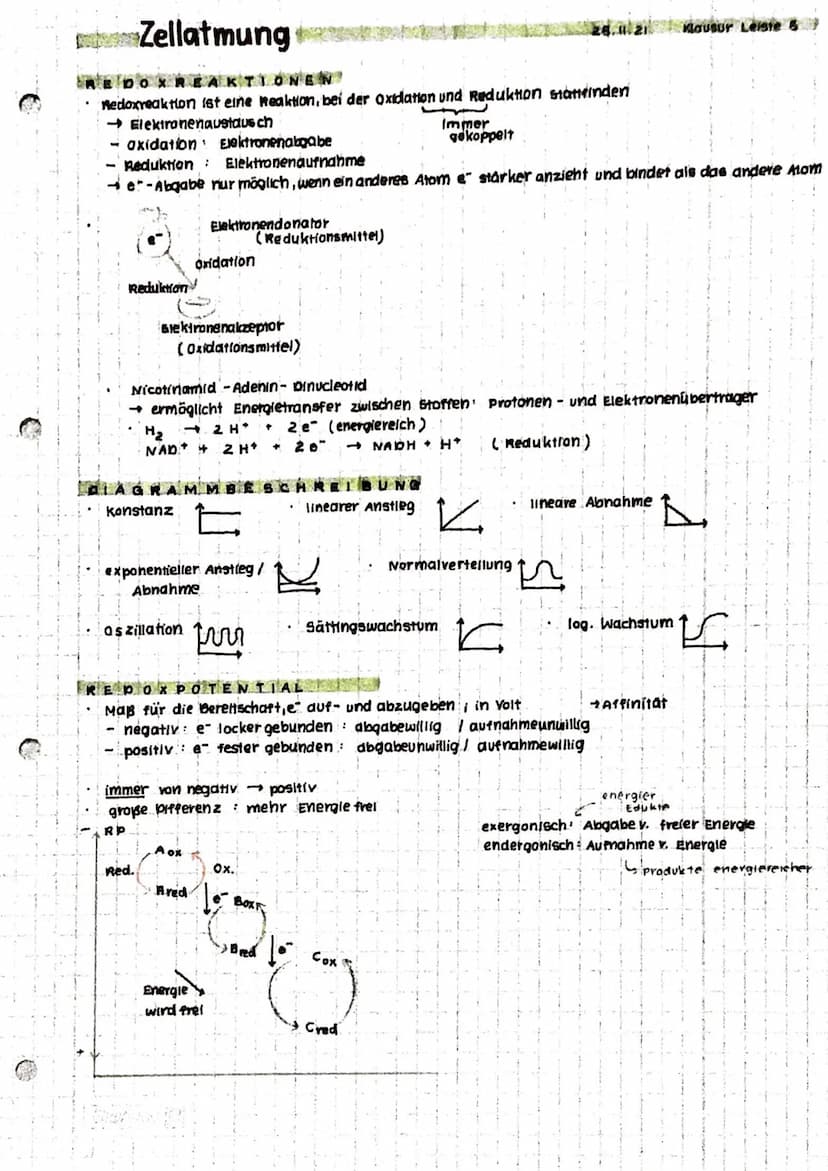 Zellatmung
28.11.21 Klausur Leiste 5
REDOXREAKTIONEN
· Redoxreaktion ist eine Reaktion, bei der Oxidation und Reduktion stattfinden
immer gekoppelt
→ Elektronenaustausch
- Oxidation: Elektronenabgabe
- Reduktion: Elektronenaufnahme
→ e⁻-Abgabe nur möglich, wenn ein anderes Atom e⁻ stärker anzieht und bindet als das andere Atom
e⁻
Elektronendonator
(Reduktionsmittel)
Oxidation
Reduktion
Elektronenakzeptor
(Oxidationsmittel)
· Nicotinamid-Adenin-Dinucleotid
→ ermöglicht Energietransfer zwischen Stoffen: Protonen- und Elektronenüberträger
· H₂ → 2 H⁺ + 2 e⁻ (energiereich)
NAD⁺ + 2 H⁺ + 2 e⁻ → NADH + H⁺ (Reduktion)
DIAGRAMMBESCHREIBUNG
· Konstanz · linearer Anstieg · lineare Abnahme
· exponentieller Anstieg/ Abnahme · Normalverteilung
· Oszillation · Sättingswachstum · log. Wachstum
REDOXPOTENTIAL
· Maß für die Bereitschaft, e⁻ auf- und abzugeben; in Volt → Affinität
- negativ: e⁻ locker gebunden: abgabewillig / aufnahmeunwillig
- positiv: e⁻ fester gebunden: abgabeunwillig / aufnahmewillig
· immer von negativ → positiv
· große Differenz: mehr Energie frei
energier
Edukte
exergonisch: Abgabe v. freier Energie
endergonisch: Aufnahme v. Energie
↳ Produkte energiereicher
- RP
A ox
Red. Ox.
A red
e⁻ Box
Bred e⁻
Cox
Energie
wird frei
Cred
+